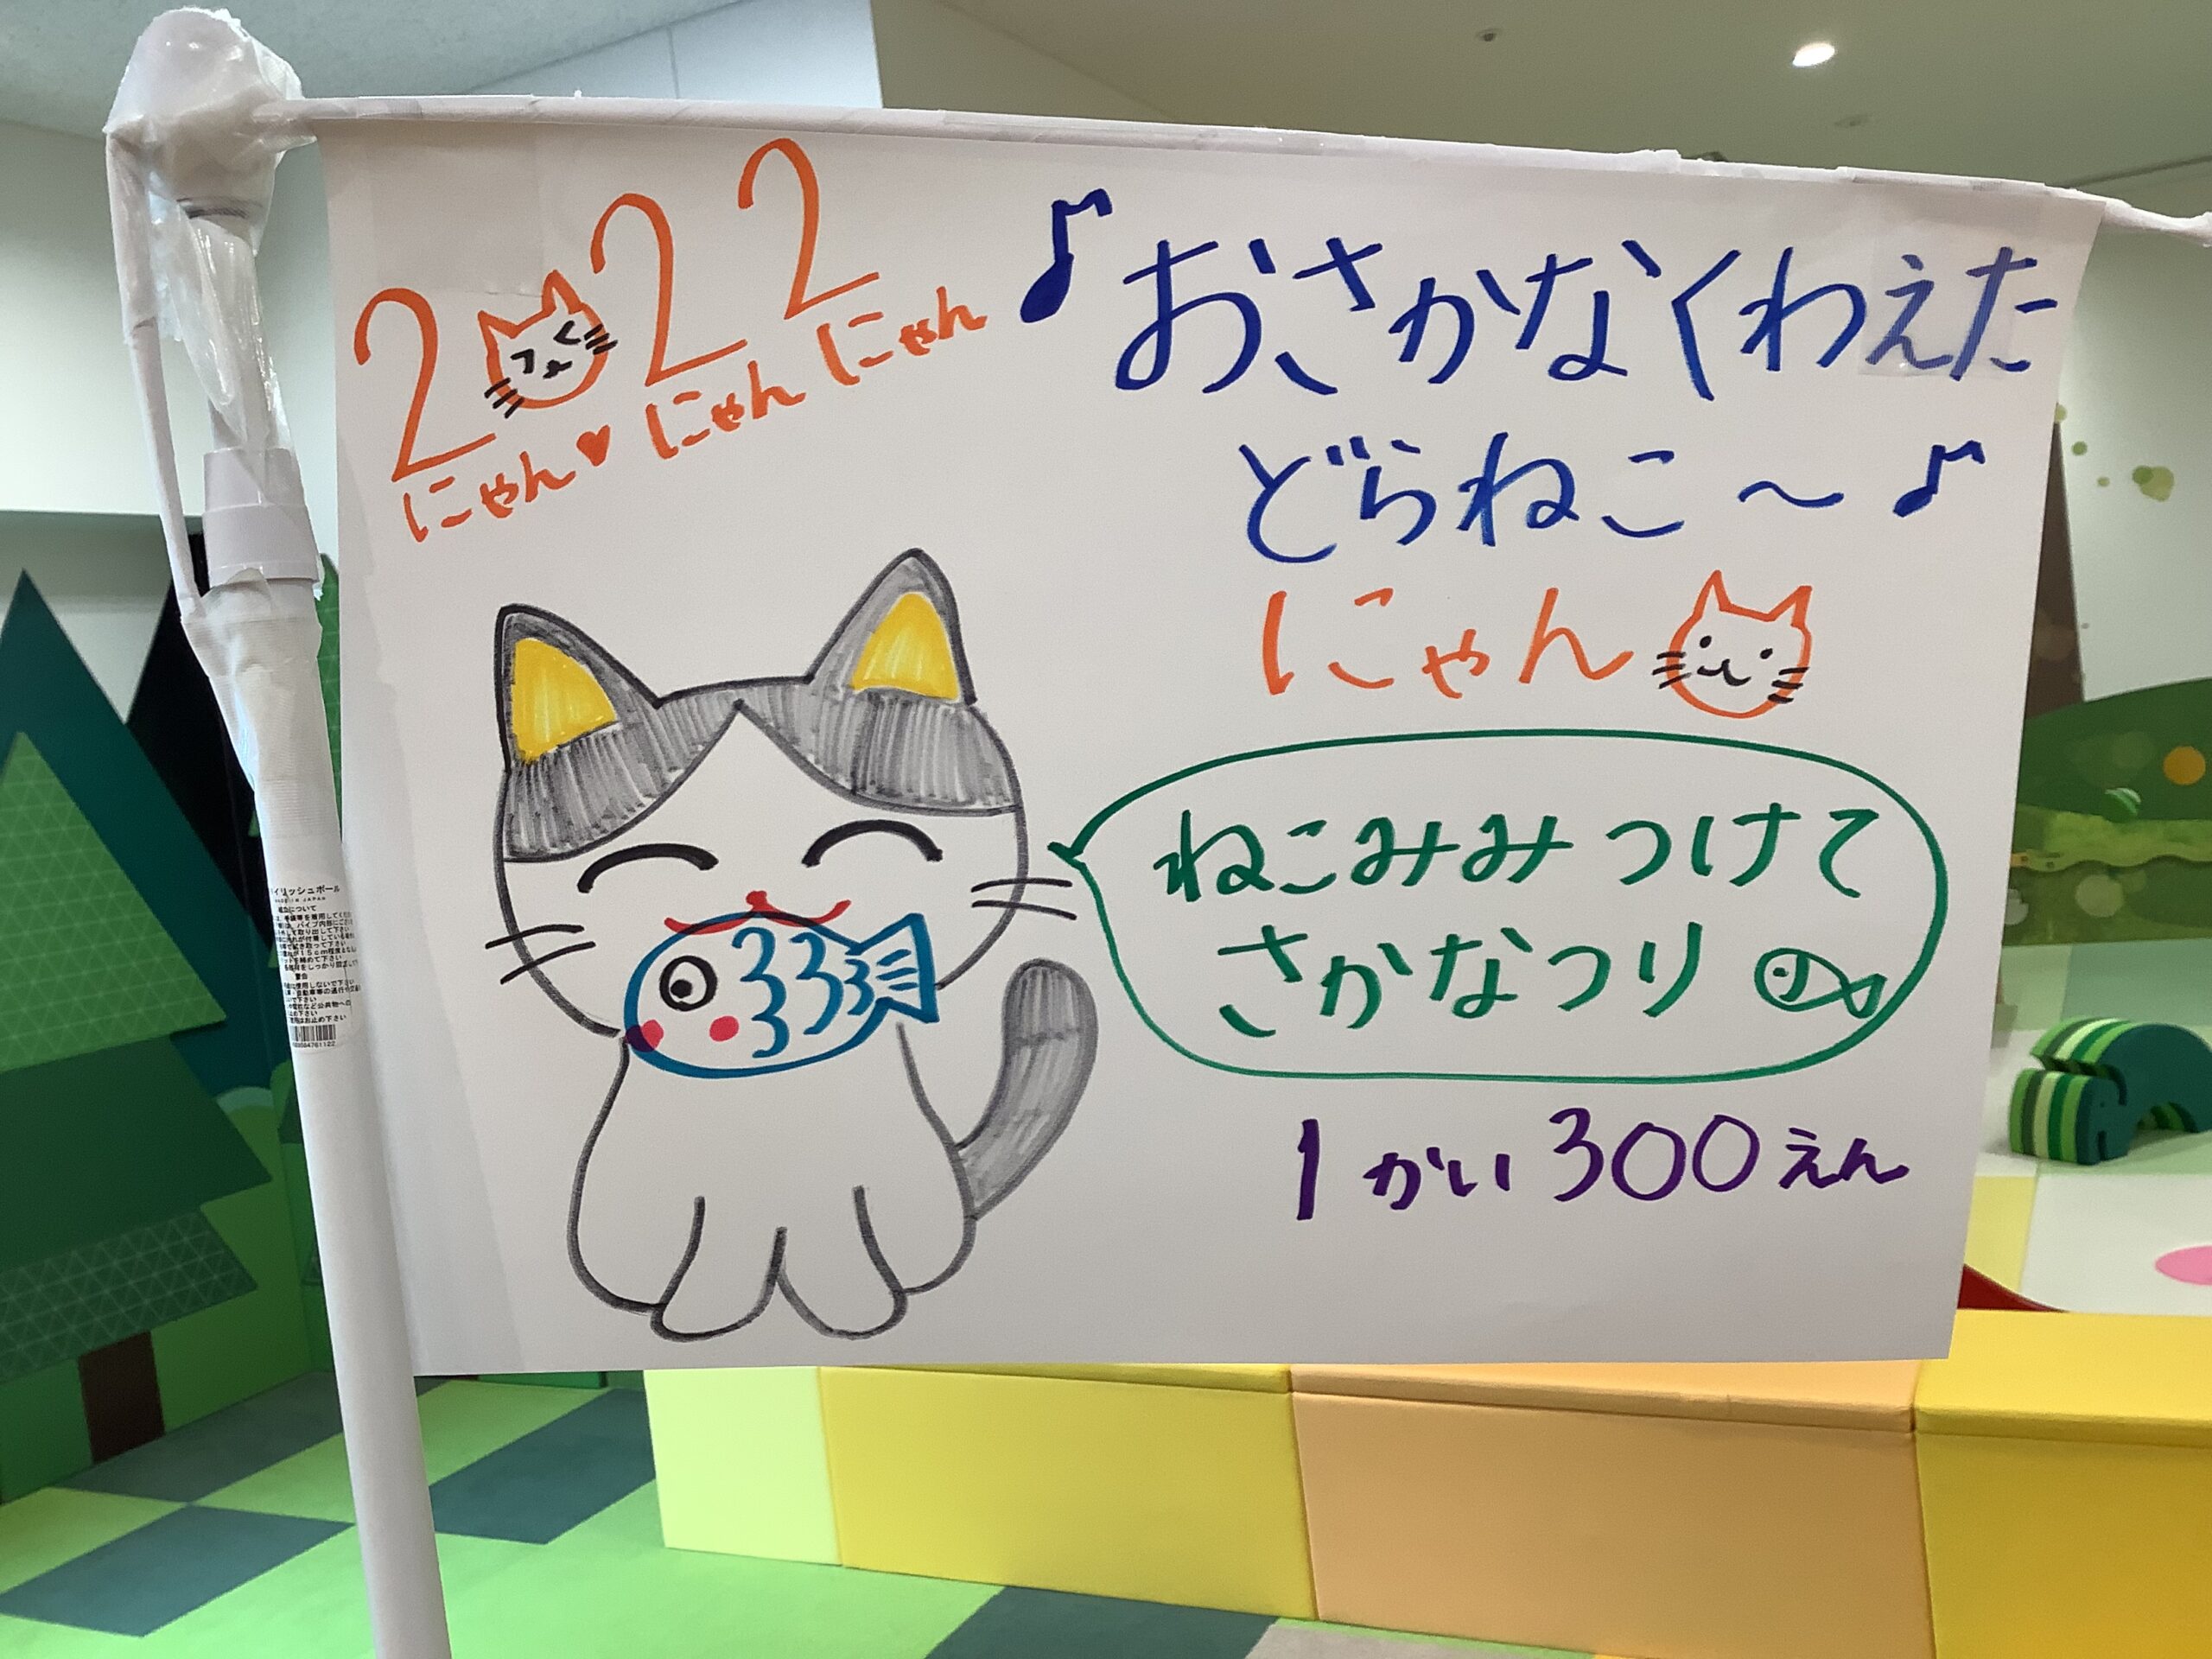 2022
にゃん♥にゃんにゃん
♪おさかなくわえた
どらねこ～♪
にゃん
ねこみみつけて
さかなつり
1かい300えん
MADE IN JAPAN